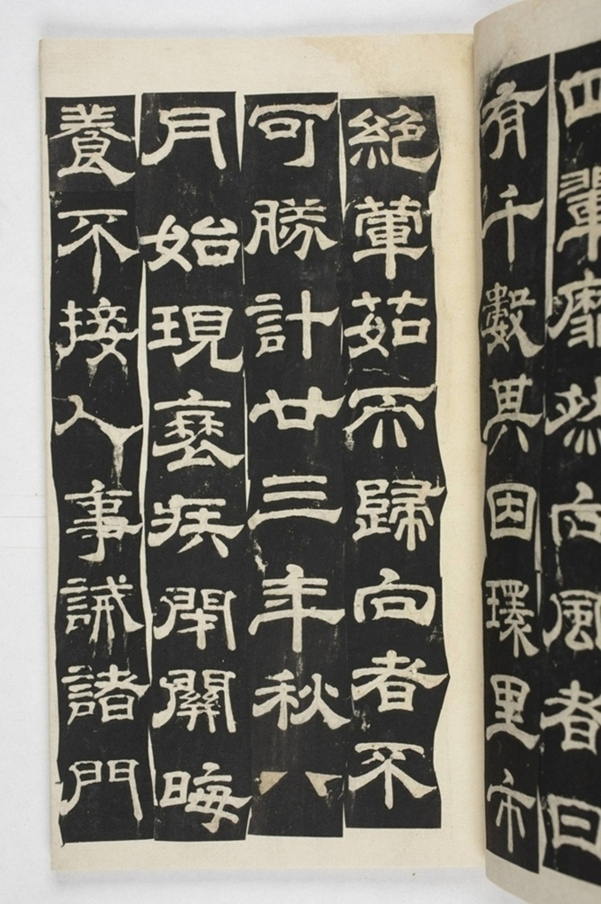 四輩靡然向風者日
有千數其因環里市
絕葷茹而歸向者不
可勝計廿三年秋八
月始現衰疾閉關晦
養不接人事誡諸門